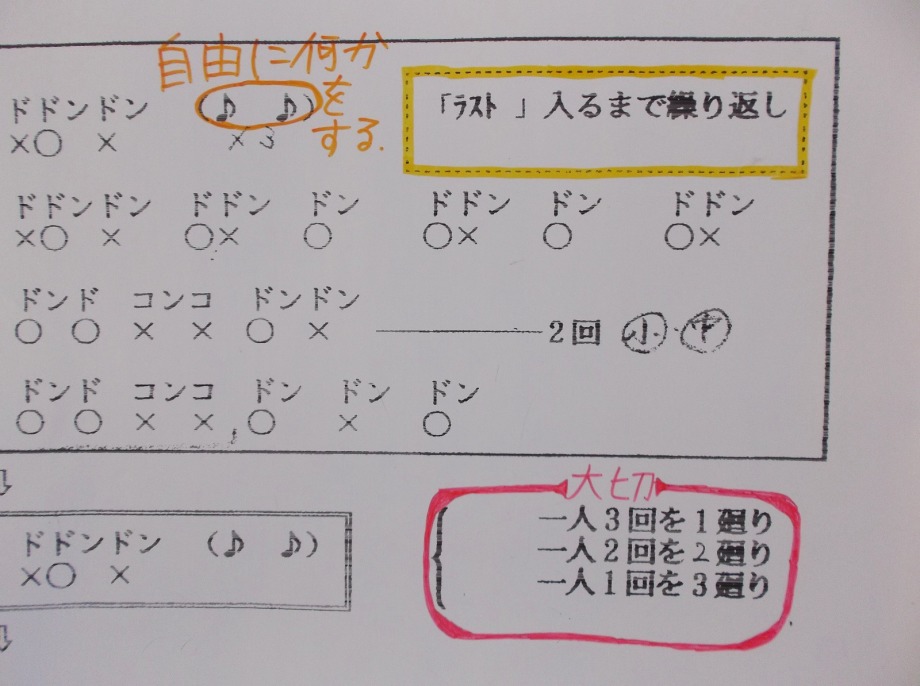 自由に何か
をする.
ドドンドン (♪ ♪) 「ラスト 」入るまで繰り返し
×○ × ×3
ドドンドン ドドン ドン ドドン ドン ドドン
×○ × ○× ○ ○× ○ ○×
ドンド コンコ ドンドン
○ ○ × × ○ × 2回 小・中
ドンド コンコ ドン ドン ドン
○ ○ × × ○ × ○
大切
ドドンドン (♪ ♪)
×○ ×
一人3回を1廻り
一人2回を2廻り
一人1回を3廻り